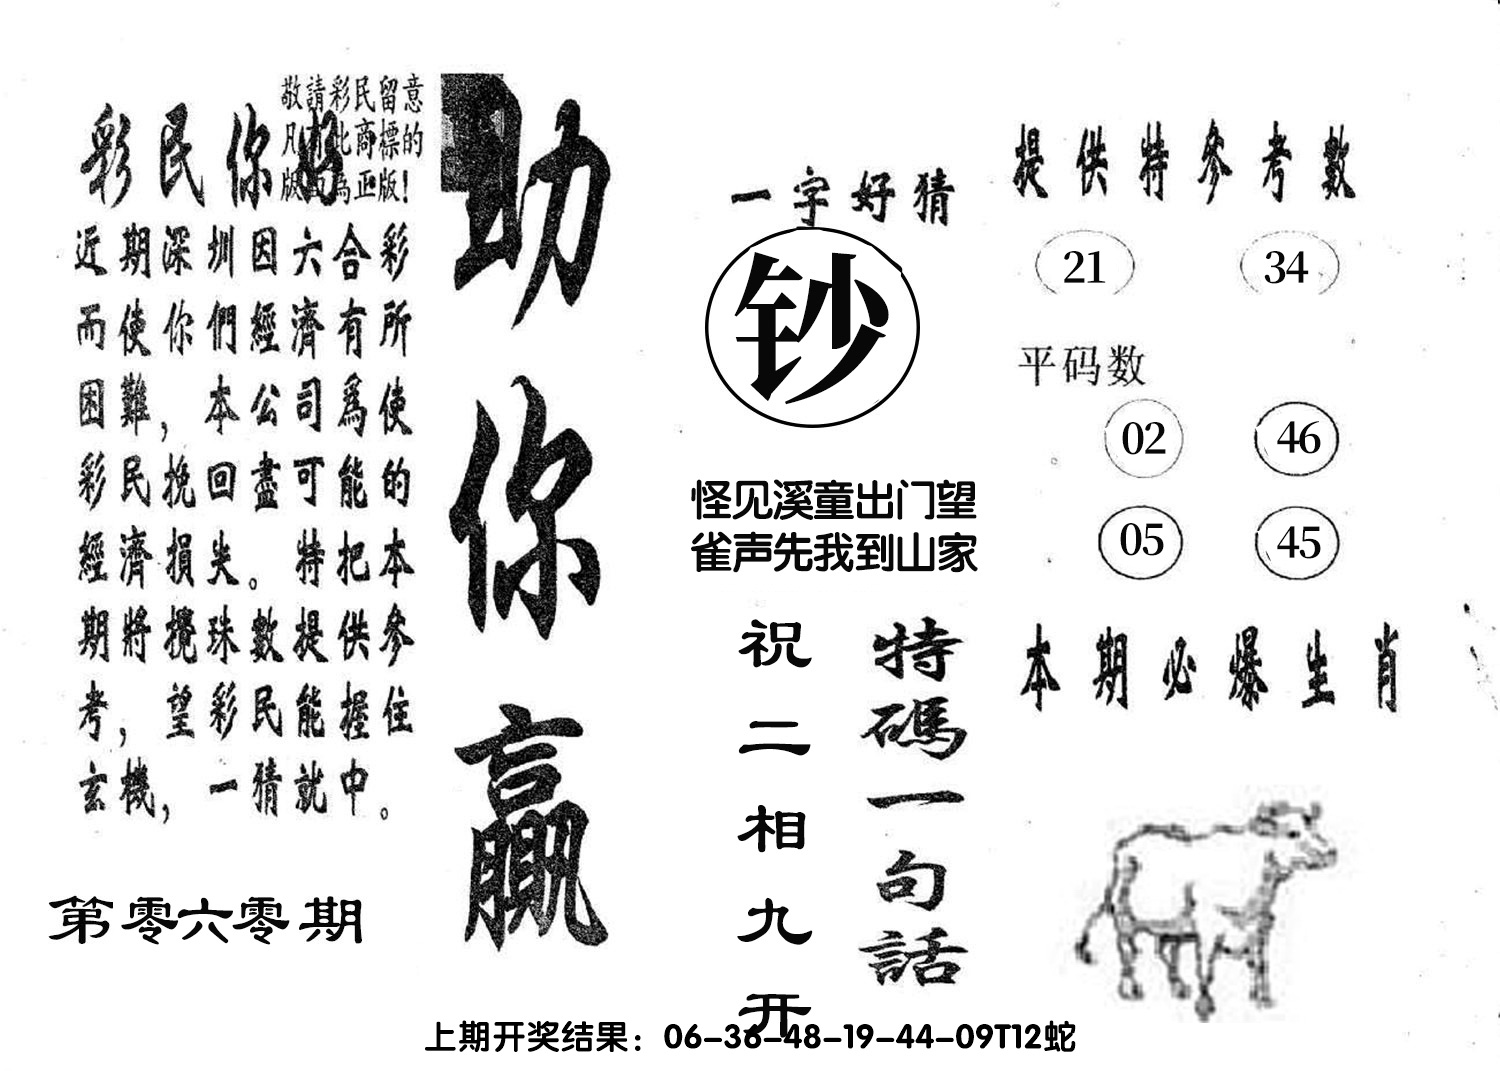 敬請彩民留意
凡有此商標的
版面為正版！
彩民你好
近期深圳因六合彩
而使你們經濟有所
困難，本公司爲使
彩民挽回盡可能的
經濟損失。特把本
期將攪珠數提供參
考，望彩民能握住
玄機，一猜就中。
第零六零期
助你贏
一字好猜
钞
怪见溪童出门望
雀声先我到山家
特碼一句話
祝二相九开
提供特參考數
21 34
平码数
02 46
05 45
本期必爆生肖
上期开奖结果：06-36-48-19-44-09T12蛇